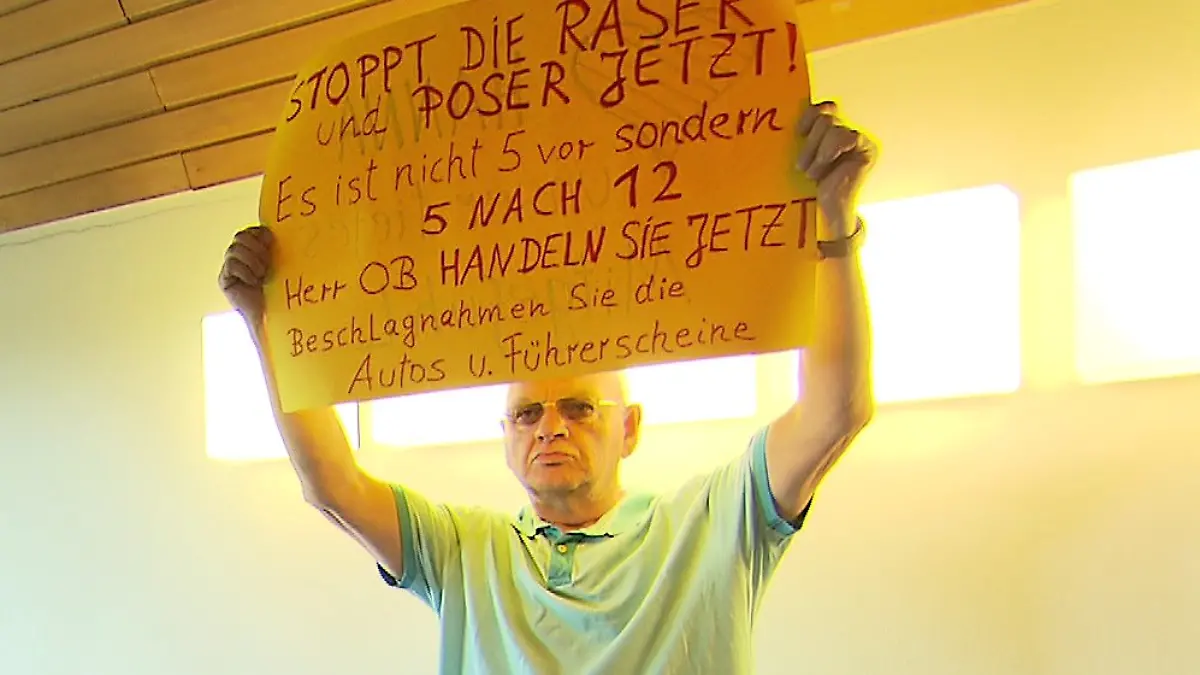 STOPPT DIE RASER
und POSER JETZT!
Es ist nicht 5 vor sondern
5 NACH 12
Herr OB HANDELN SIE JETZT
Beschlagnahmen Sie die
Autos u. Führerscheine